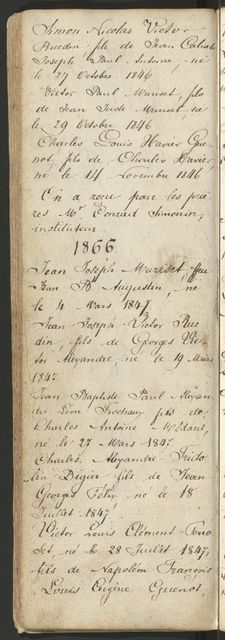 Simon Nicolas Victor
fils de Jean
Joseph Paul Antoine, né
le 27 Octobre 1846
Victor Paul Mauset, fils
de Jean Juste Mauset, né
le 29 Octobre 1846
Charles Louis Xavier Gue-
not, fils de Charles Xavier
né le 14 Novembre 1846
On a reçu par les priè
res Mr Simonin,
instituteur
1866
Jean Joseph fils
Jean Bte Augustin, né
le 4 Mars 1847
Jean Joseph Victor Rue
din, fils de Georges Vic
tor Alexandre, né le 19 Mars
1847
Jean Baptiste Paul Alexan
dre Léon fils de
Charles Antoine
né le 27 Mars 1847
Charles Alexandre Frido
lin fils de Jean
Georges Félix né le 18
Juillet 1847
Victor Louis Clément
né le 28 Juillet 1847,
fils de Napoléon François
Louis Eugène Guenot,